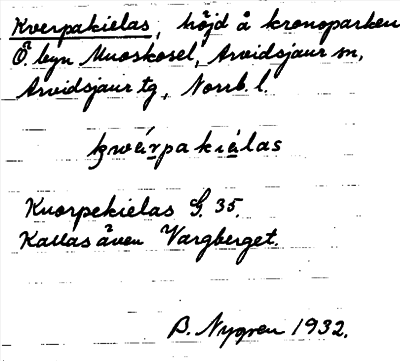 Kverpakielas, höjd å kronoparken
Ö. byn Muoskosel, Arvidsjaur sn,
Arvidsjaur tg, Norrb. l.
kwèrpa kièlas
Kuorpekielas G. 35.
Kallas även Vargberget.
B. Nygren 1932.